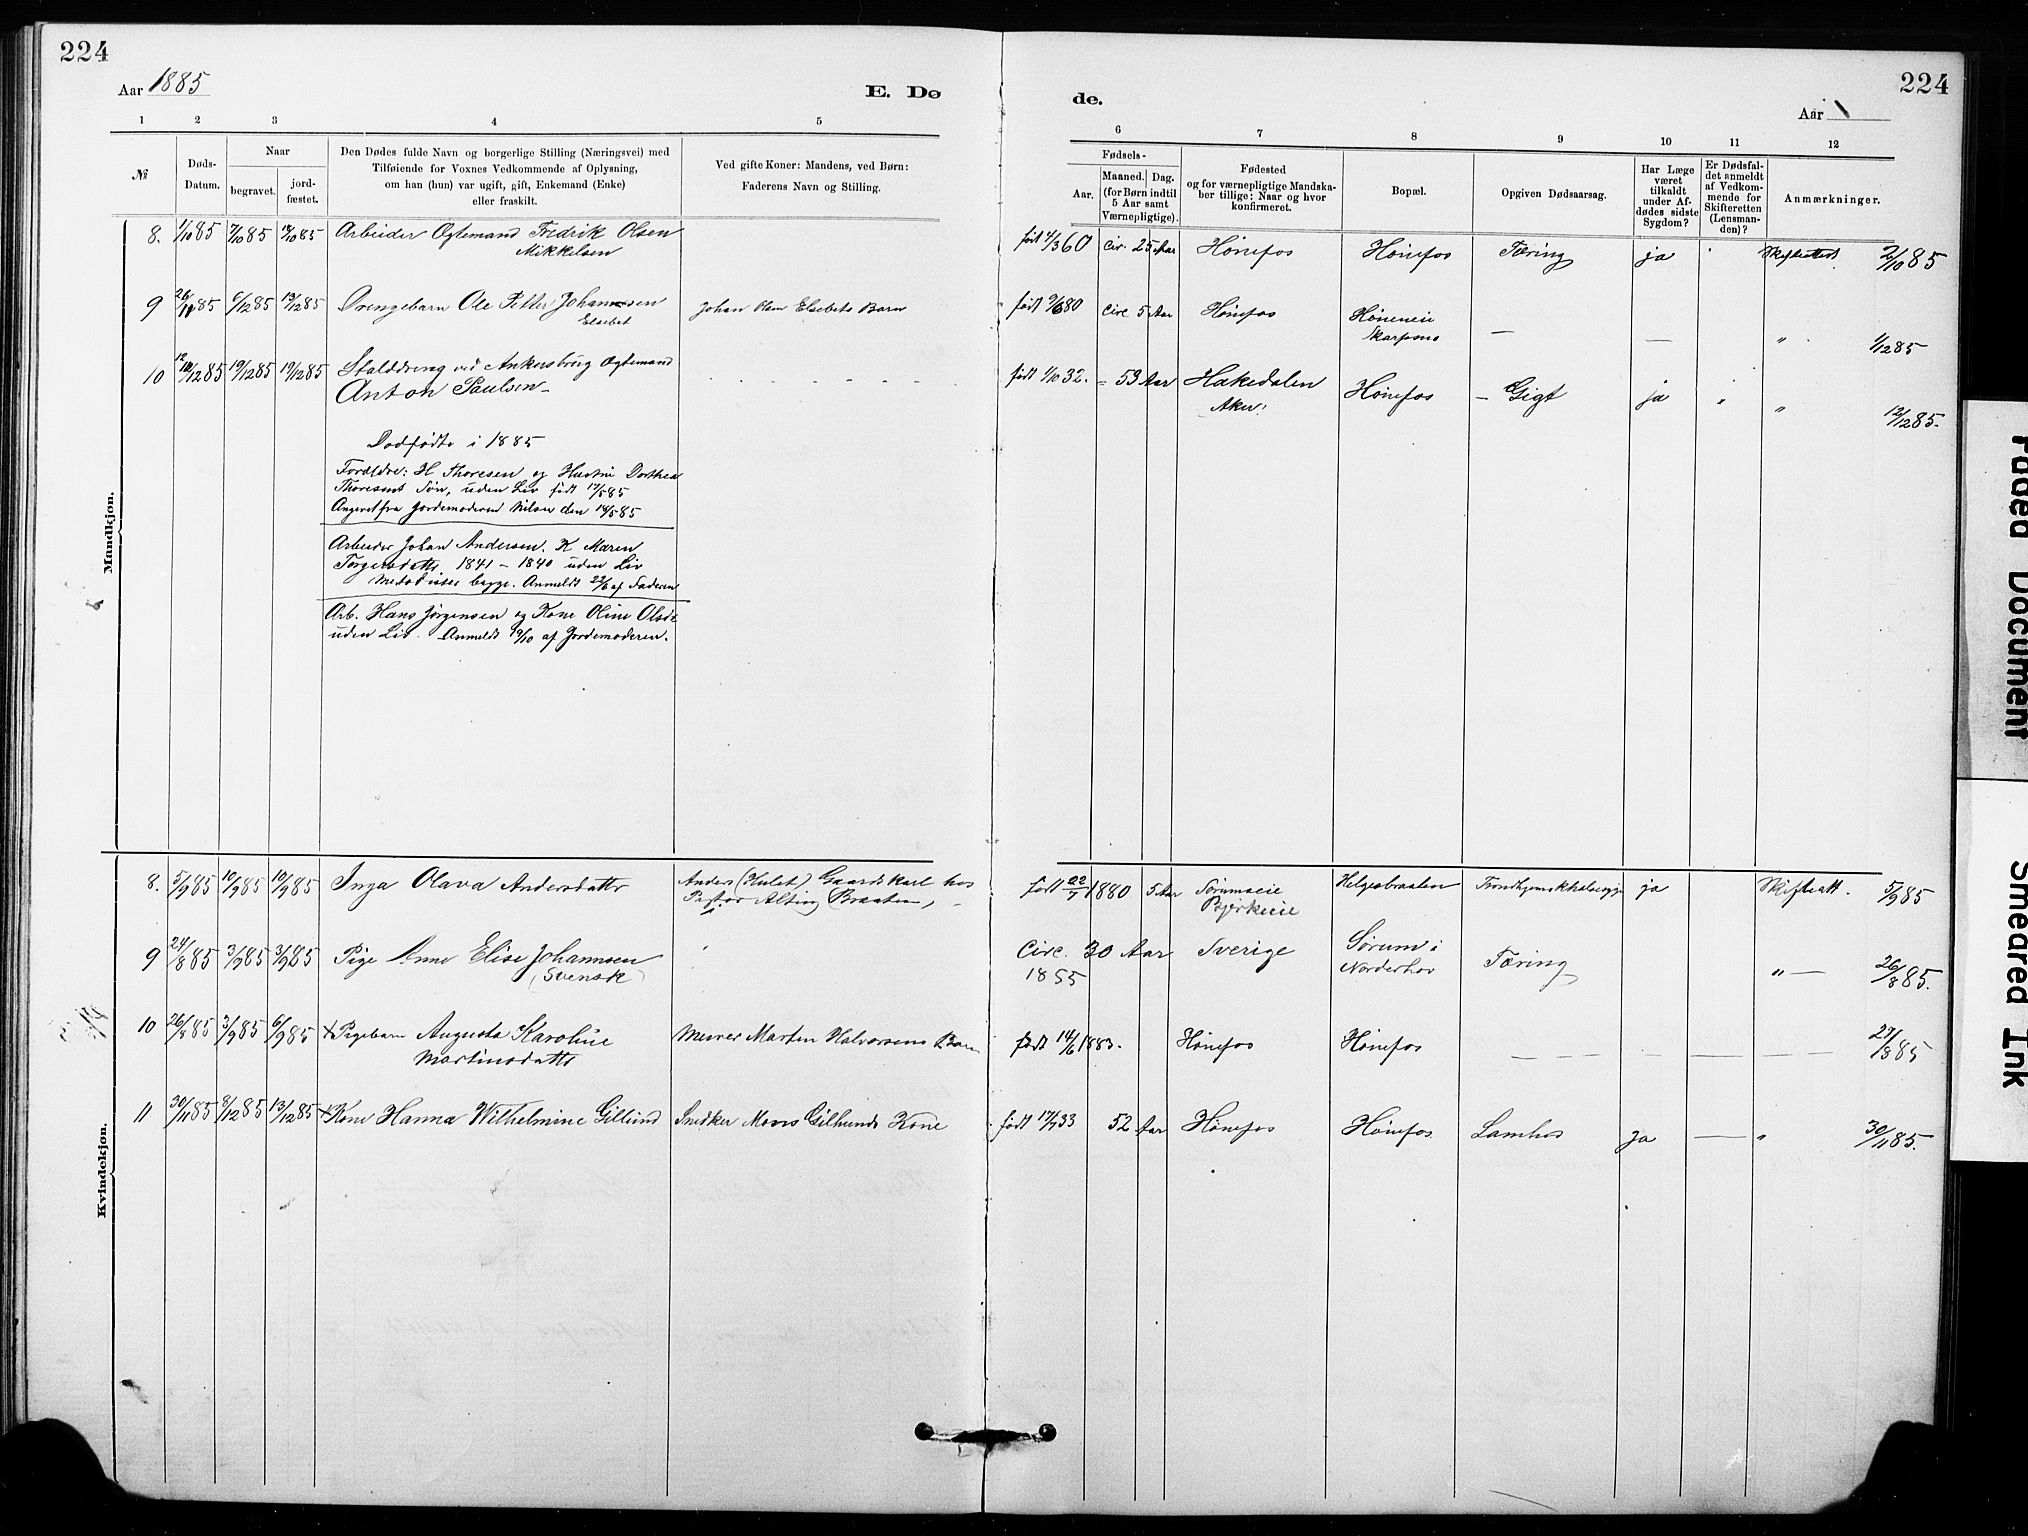 224
Aar 1885
E. Dø
de.
224
Aar
1 2 3 4 5
6 7 8 9 10 11 12
№
Døds-
Datum.
Naar
begravet.
jord-
fæstet.
Den Dødes fulde Navn og borgerlige Stilling (Næringsvei) med
Tilføiende for Voxnes Vedkommende af Oplysning,
om han (hun) var ugift, gift, Enkemand (Enke)
eller fraskilt.
Ved gifte Koner: Mandens, ved Børn:
Faderens Navn og Stilling.
Fødsels-
Aar.
Maaned. Dag.
(for Børn indtil
5 Aar samt
Værnepligtige).
Fødested
og for værnepligtige Mandska-
ber tillige: Naar og hvor
konfirmeret.
Bopæl.
Opgiven Dødsaarsag.
Har Læge
været
tilkaldt
under Af-
dødes sidste
Sygdom?
Er Dødsfal-
det anmeldt
af Vedkom-
mende for
Skifteretten
(Lensman-
den)?
Anmærkninger.
Mandkjøn.
8. 1/10 85 7/10 85 18/10 85 Arbeider Ogtemand Fredrik Olsen
Mikkelsen
født 4/3 60 cir. 25 Aar Hønefos Hønefos Tæring ja Skifterett. 2/10 85
9 26/11 85 6/12 85 13/12 85 Drengebarn Ole Petter Johannsen
Elsebet
Johan Olsen Elsebets Barn
født 9/6 80 circ 5 Aar Hønefos Høneneie
Skarpsno — — " 1/12 85
10 12/12 85 19/12 85 19/12 85 Stalddreng ved Ankersbrug Ogtemand
Anton Paulsen
født 1/10 32. = 53 Aar Hakedalen
Aker.
Hønefos — Gigt ja " " 12/12 85.
Dodfødte i 1885
Foræeldre: H Thoresen og Hustru Dorthea
Thoresens Søn, uden Liv født 17/5 85
Angivet fra Jordemoderen Nilsen den 18/5 85
Arbeider Johan Andersen. K Maren
Torgersdatter 1841 – 1840 uden Liv
Metodister begge. Anmeldt 22/6 af Faderen
Arb. Hans Jørgensen og Kone Oline Olsdr
uden Liv. Anmeldt 19/10 af Jordemoderen.
Kvindekjøn.
8. 5/9 85 10/9 85 10/9 85 Inga Olava Andersdatter
Anders (Hulet) Gaardskarl hos
Pastor Alting Braaten,
født 22/7 1880 5 Aar Sørumseie
Bjerkeeie
Helgesbraaten ja Skifterett. 5/9 85
9 24/8 85 3/9 85 3/9 85 Pige Anne Elise Johannsen
(Svensk)
Circ. 30 Aar
1855
Sverige Sørum i
Norderhov
Tæring " — 26/8 85.
10 26/8 85 3/9 85 6/9 85 x Pigebarn Augusta Karoline
Martinsdatter
Murer Marten Halvorsens Barn
født 14/6 1883. Hønefos Hønefos — — — — — 27/8 85
11 30/11 85 8/12 85 13/12 85 x Kone Hanna Wilhelmine Gillund Snedker Mons Gillunds Kone
født 17/7 33 52 Aar Hønefos Hønefos Lamhed ja — " 30/11 85.
Faded Document
Smeared Ink